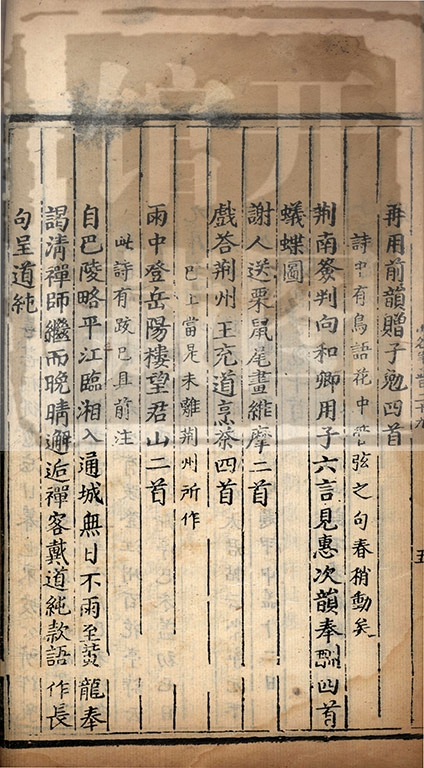 再用前韻贈子勉四首
詩中有鳥語花中管弦之句春稍動矣
荆南簽判向和卿用子六言見惠次韻奉酬四首
蟻蝶圖
謝人送栗鼠尾畫維摩二首
戲答荆州王充道烹茶四首
巳上當是未離荆州所作
雨中登岳陽樓望君山二首
此詩有跋巳具前注
自巴陵略平江臨湘入通城無日不雨至黄龍奉
謁清禪師繼而晚晴邂逅禪客戴道純款語作長
句呈道純
五